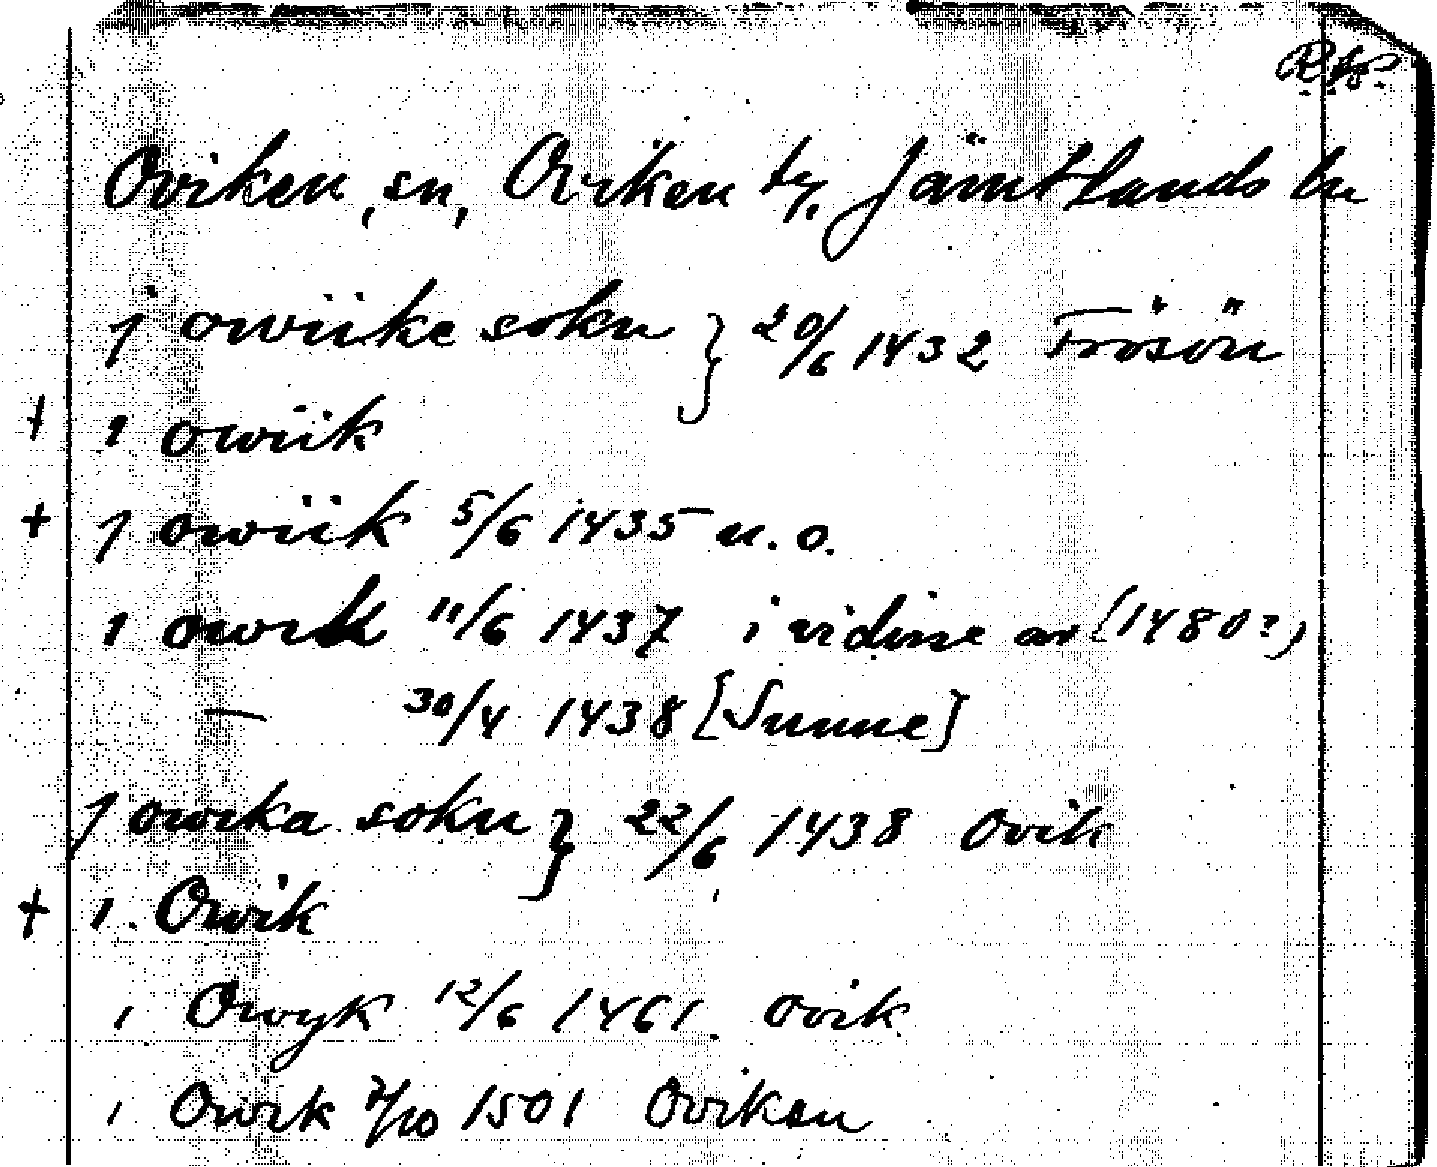 Rfp.
Oviken, sn, Oviken ty. Jämtlands ln
j owiike sokn } 20/6 1432 Frösön
+ i owiik
+ j owiik 5/6 1435 u.o.
i owik 11/6 1437 i vidisse av (1480?)
— 30/4 1438 [Sunne]
j owika sokn } 22/6 1438 Ovik
+ i Owik
i Owyk 12/6 1461. Ovik
i Owik 7/10 1501 Oviken